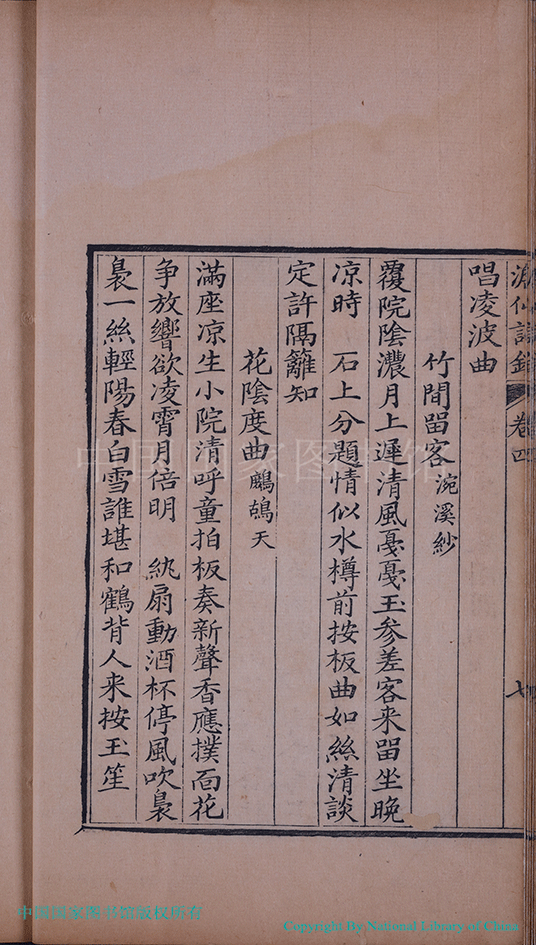 卷四
七
唱凌波曲
竹間畱客 浣溪紗
覆院陰濃月上遲清風戞戞玉參差客来畱坐晚
凉時　石上分題情似水樽前按板曲如絲清談
定許隔籬知
花陰度曲 鷓鴣天
滿座凉生小院清呼童拍板奏新聲香應撲面花
争放響欲凌霄月倍明　紈扇動酒杯停風吹裊
裊一絲輕陽春白雪誰堪和鶴背人来按玉笙
中国国家图书馆
中国国家图书馆版权所有
Copyright By National Library of China